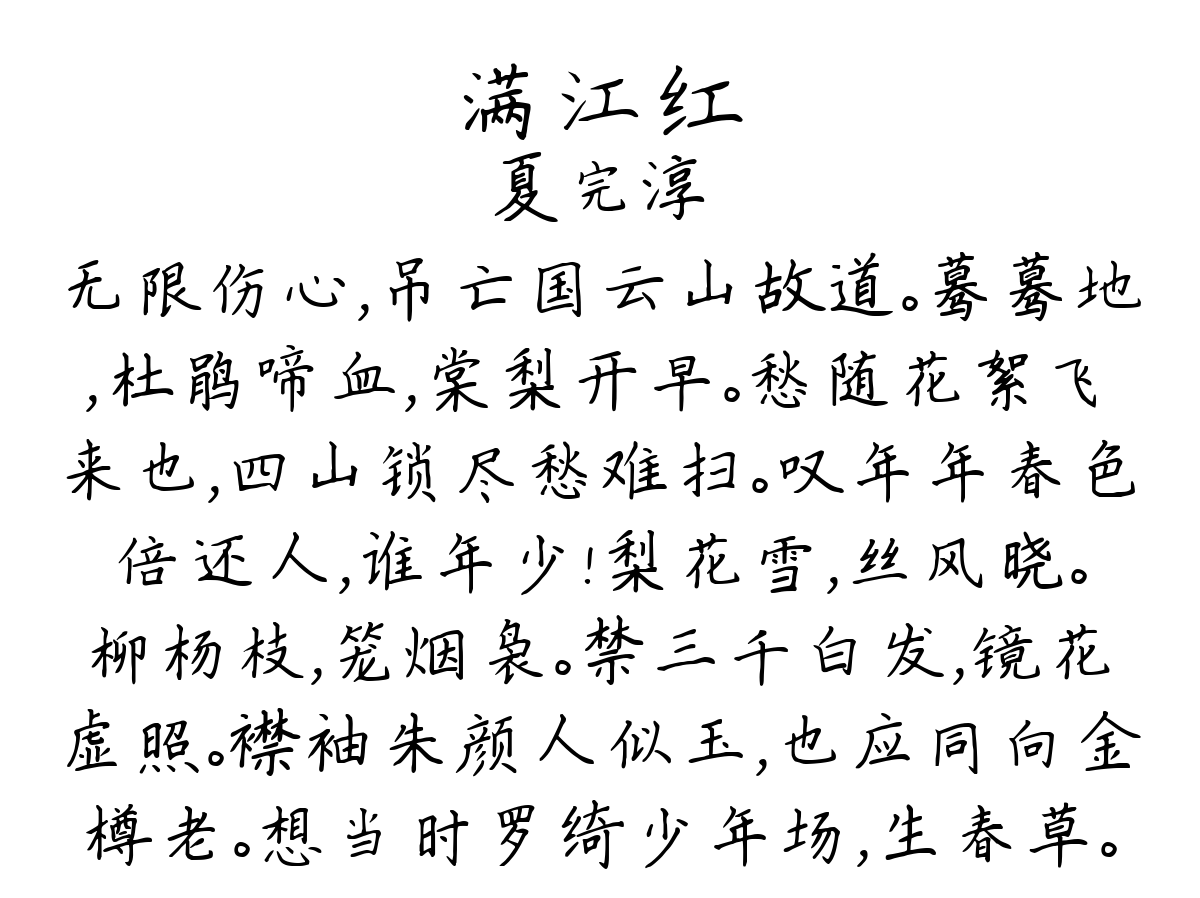 满江红
夏完淳
无限伤心,吊亡国云山故道。蓦蓦地
,杜鹃啼血,棠梨开早。愁随花絮飞
来也,四山锁尽愁难扫。叹年年春色
倍还人,谁年少!梨花雪,丝风晓。
柳杨枝,笼烟袅。禁三千白发,镜花
虚照。襟袖朱颜人似玉,也应同向金
樽老。想当时罗绮少年场,生春草。